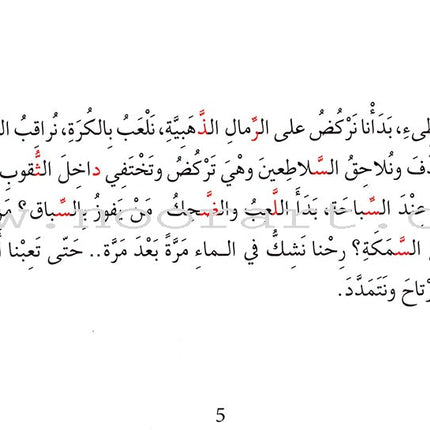 بَدَأْنا نَرْكُضُ على الرِّمالِ الذَّهَبِيَّةِ، نَلْعَبُ بِالكُرَةِ، نُراقِبُ
وَنُلاحِقُ السَّلاطِعينَ وَهْيَ تَرْكُضُ وَتَخْتَفي داخِلَ الثُّقوبِ
عِنْدَ السِّباحَةِ، بَدَأَ اللَّعِبُ والضَّحِكُ. مَنْ يَفوزُ بِالسِّباقِ؟
السَّمَكَةِ؟ رِحْنا نَشِكُّ في الـماءِ مَرَّةً بَعْدَ مَرَّة.. حَتّى تَعِبْنا
وَنَتَمَدَّدَ.
5
www.noorart.c